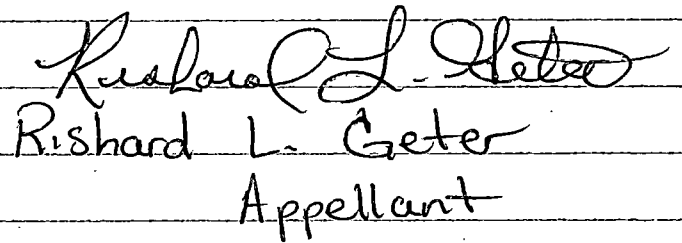 Rishard L. Geter
Rishard L. Geter
Appellant